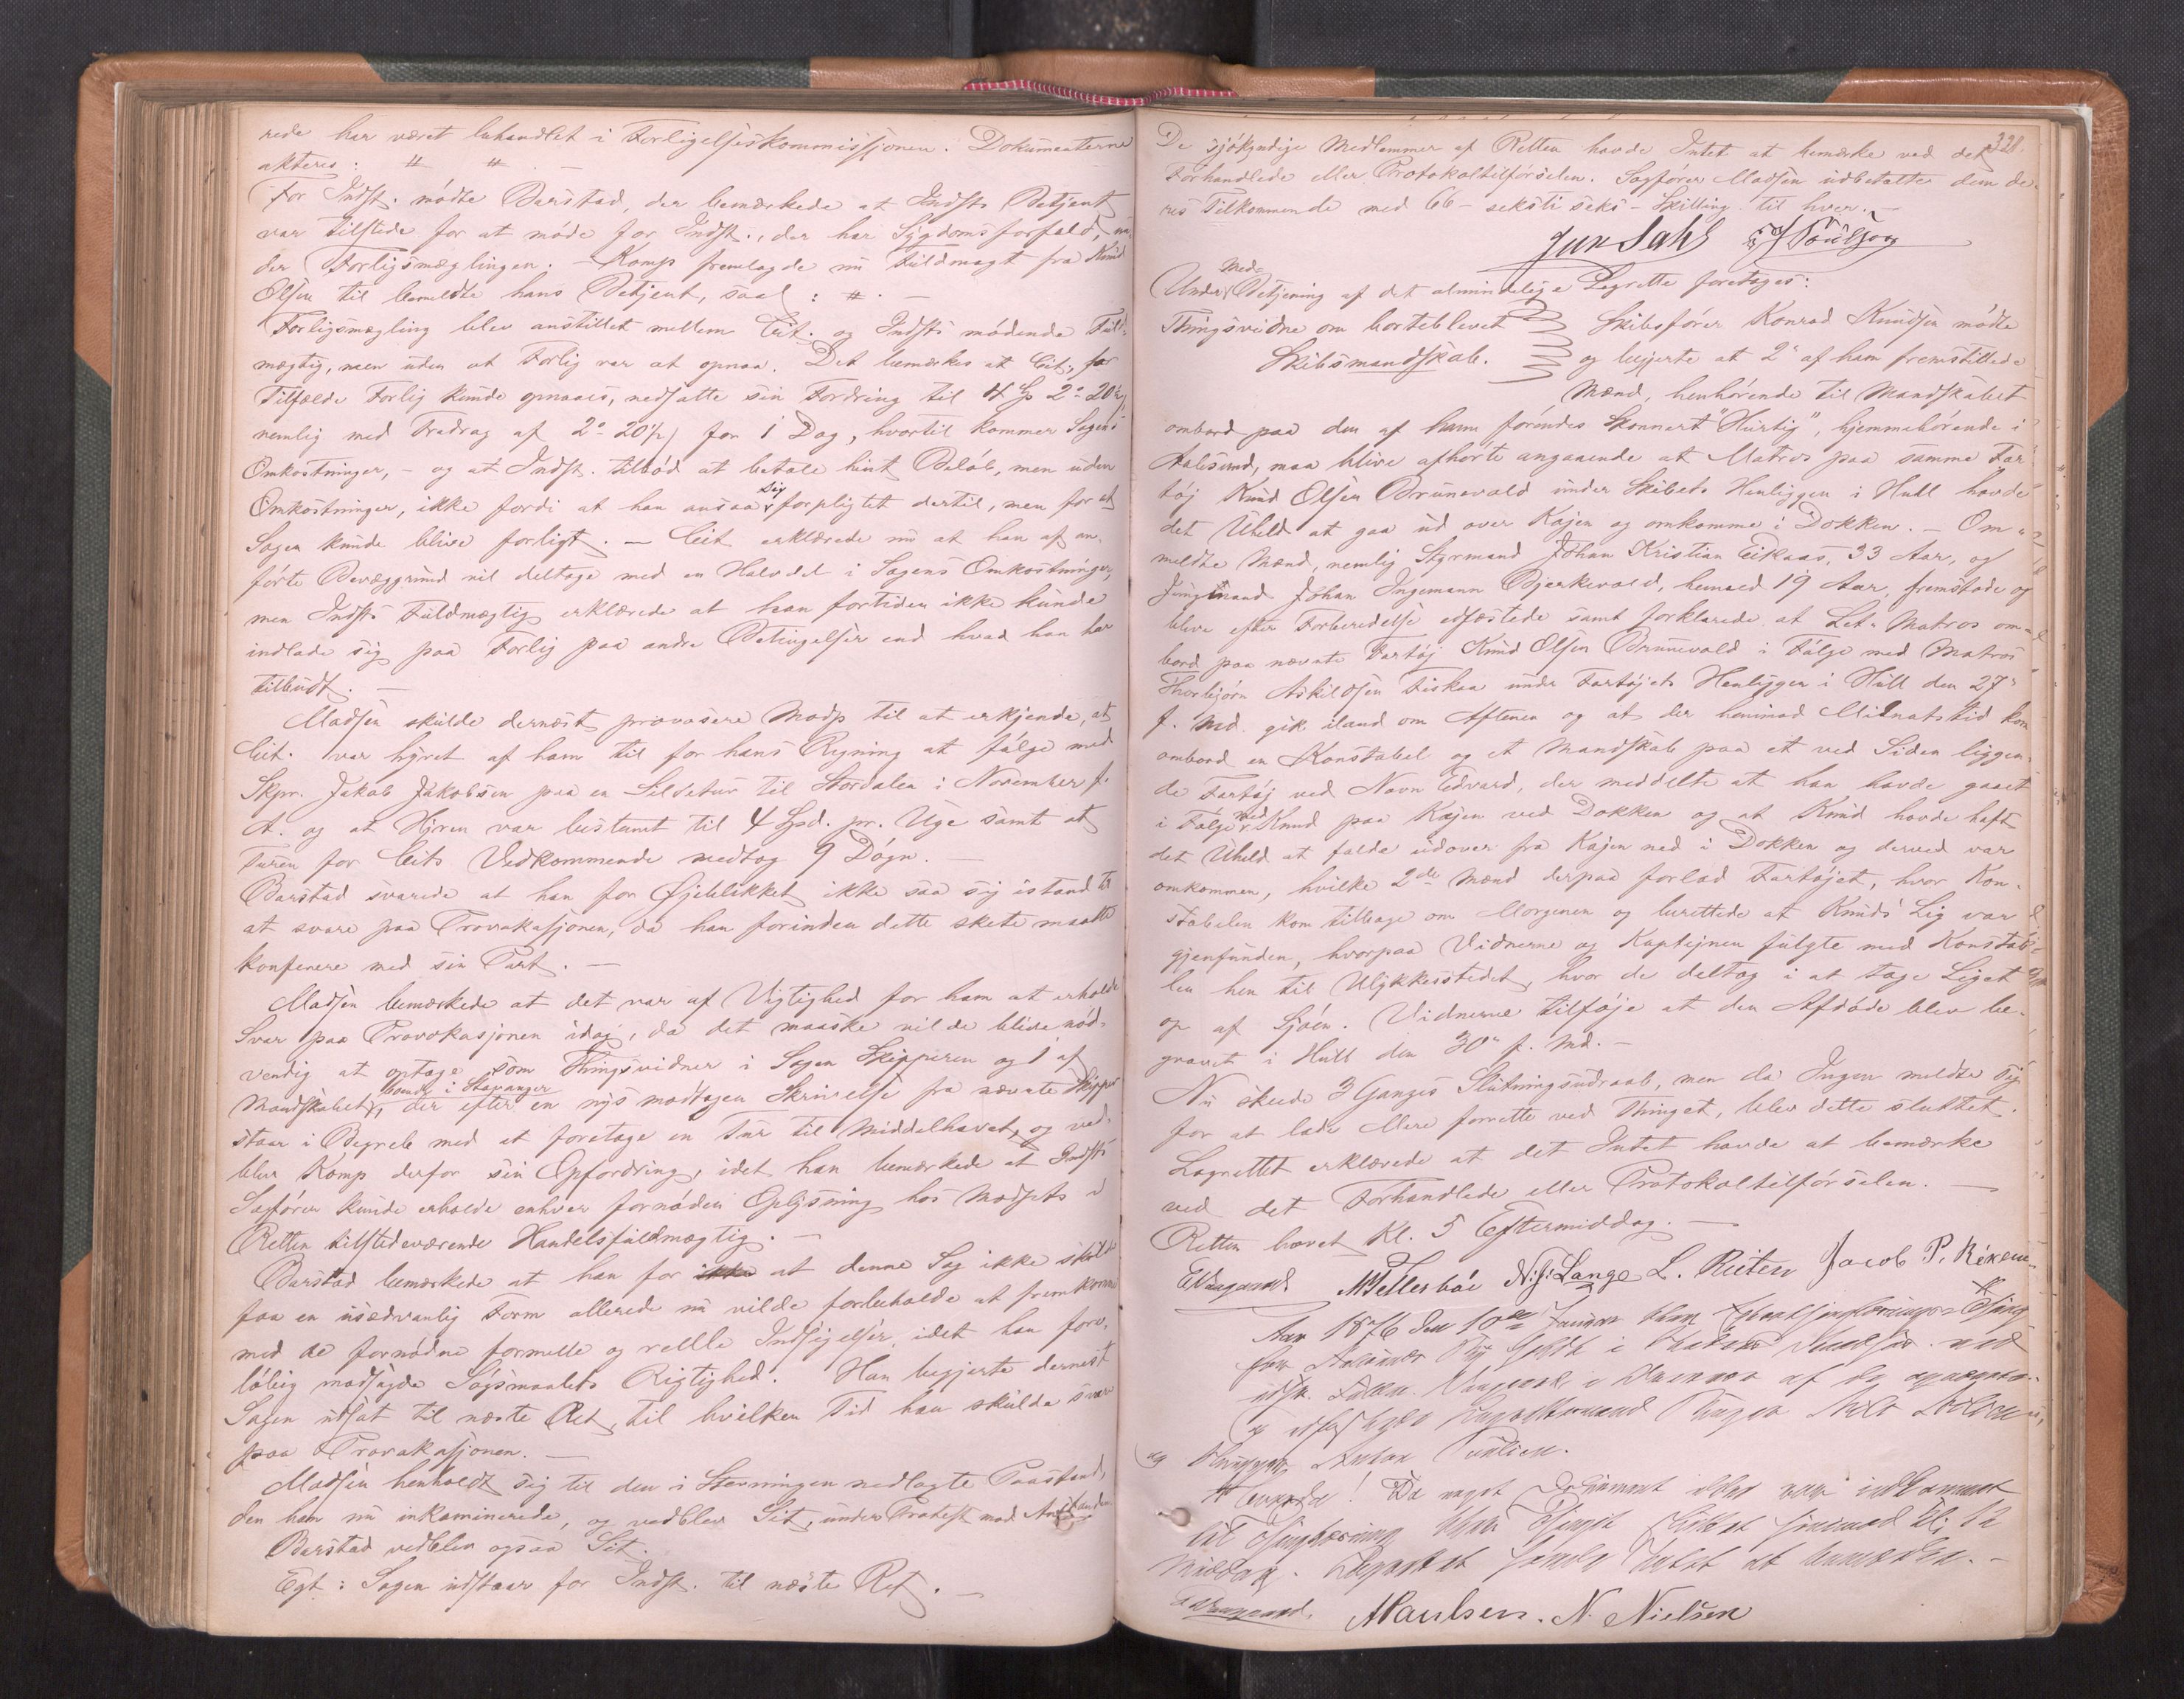 rede har været behandlet i Forligelseskommissjonen. Dokumenterne
akteres: # #. —
For Indst. mødte Barstad, der bemærkede at Indsts Betjent
var tilstede for at møde for Indst., der har Sygdomsforfald, un-
der Forligsmæglingen. — Komp fremlagde nu Fuldmagt fra Knud
Olsen til bemeldte hans Betjent, saal: #. —
Forligsmægling blev anstillet mellem Cit. og Indsts mødende Fuld-
mægtig, men uden at Forlig var at opnaa. Det bemærkes at Cit., for
Tilfælde Forlig kunde opnaaes, nedsatte sin Fordring til 4 Sp 2 20
nemlig med Fradrag af 2 20 for 1 Dag, hvortil kommer Sagens
Omkostninger, — og at Indst. tilbød at betale hint Beløb, men uden
Omkostninger, ikke fordi at han ansaa sig forpligtet dertil, men for at
Sagen kunde blive forligt. — Cit erklærede nu at han af an-
førte Bevæggrund vil deltage med en Halvdel i Sagens Omkostninger,
men Indsts Fuldmægtig erklærede at han fortiden ikke kunde
indlade sig paa Forlig paa andre Betingelser end hvad han har
tilbudt. —
Madsen skulde dernæst provosere Modp til at erkjende, at
Cit. var hyret af ham til for hans Regning at følge med
Skpr. Jakob Jakobsen paa en Sildetur til Stordalen i November f.
A. og at Hyren var bestemt til 4 Spd. pr. Uge samt at
Turen for Cits Vedkommende medtog 9 Døgn.
Barstad svarede at han for Øjeblikket ikke saa sig istand til
at svare paa Provokasjonen, da han forinden dette skete maatte
konferere med sin Part. —
Madsen bemærkede at det var af Vigtighed for ham at erholde
Svar paa Provokasjonen idag, da det maaske vilde blive nød-
vendig at optage som Thingsvidner i Sagen Skipperen og 1 af
Mandskabet, boende i Stavanger der efter en nys modtagen Skrivelse fra nævnte Skipper
staar i Begreb med at foretage en Tur til Middelhavet, og ved-
blev Komp derfor sin Opfordring, idet han bemærkede at Indsts
Sagfører kunde erholde enhver fornøden Oplysning hos Modpts i
Retten tilstedeværende Handelsfuldmægtig. —
Barstad bemærkede at han for at denne Sag ikke skulde
faa en usædvanlig Form allerede nu vilde forbeholde at fremkomme
med de fornødne formelle og reelle Indsigelser, idet han fore-
løbig modsagde Søgsmaalets Rigtighed. Han begjerte dernæst
Sagen udsat til næste Ret, til hvilken Tid han skulde svare
paa Provokasjonen. —
Madsen henholdt sig til den i Stevningen nedlagte Paastand,
den han nu inkaminerede, og vedblev Sit, under Protest mod Anstanden
Barstad vedblev ogsaa Sit.
Egt: Sagen udstaar for Indst. til næste Ret. —
321.
De sjøkyndige Medlemmer af Retten havde Intet at bemærke ved det
Forhandlede eller Protokoltilførselen. Sagfører Madsen udbetalte dem de-
res Tilkommende med 66 - seksti seks - Skilling til hver. —
Med-
Under Betjening af det almindelige Lagrette foretages:
Thingsvidne om bortblevet Skibsfører Konrad Knudsen mødte
Skibsmandskab. og begjerte at 2 af ham fremstillede
Mænd, henhørende til Mandskabet
ombord paa den af ham førendes Skonnert "Hurtig", hjemmehørende i
Aalesund, maa blive afhørte angaaende at Matros paa samme Far-
tøj Knud Olsen Brunevold under Skibets Henliggen i Hull havde
det Uheld at gaa ud over Kajen og omkomme i Dokken. — Om-
meldte Mænd, nemlig Styrmand Johan Kristian Eikaas, 33 Aar, og
Jungmand Johan Ingemann Bjerkevold, henved 19 Aar, fremstode og
bleve efter Forberedelse edfæstede samt forklarede at Let-Matros om-
bord paa nævnte Fartøj Knud Olsen Brunevold i Følge med Matros
Thorbjørn Askildsen Fiskaa under Fartøjets Henliggen i Hull den 27
f. Md. gik iland om Aftenen og at der henimod Midnatstid kom
ombord en Konstabel og et Mandskab paa et ved Siden liggen-
de Fartøj ved Navn Edvard, der meddelte at han havde gaaet
i Følge med Knud paa Kajen ved Dokken og at Knud havde haft
det Uheld at falde udover fra Kajen ned i Dokken og derved var
omkommen, hvilke 2de Mænd derpaa forlod Fartøjet, hvor Kon-
stabelen kom tilbage om Morgenen og berettede at Knuds Lig var
gjenfunden, hvorpaa Vidnerne og Kaptejnen fulgte med Konstabe-
len hen til Ulykkesstedet, hvor de deltog i at tage Liget
op af Sjøen. Vidnerne tilføje at den Afdøde blev be-
gravet i Hull den 30 f. Md. —
Nu skede 3 Ganges Slutningsudraab, men da Ingen meldte sig
for at lade Mere forrette ved Thinget, blev dette sluttet.
Lagrettet erklærede at det Intet havde at bemærke
ved det Forhandlede eller Protokoltilførselen. —
Retten hævet Kl. 5 Eftermiddag. —
N. J. Lange L. Rieten Jacob P.
Aar 1876 den 10de Januar blev
og Anton Paulsen.
middag. Lagrettet havde Intet at bemærke. —
A Paulsen. N. Nielsen